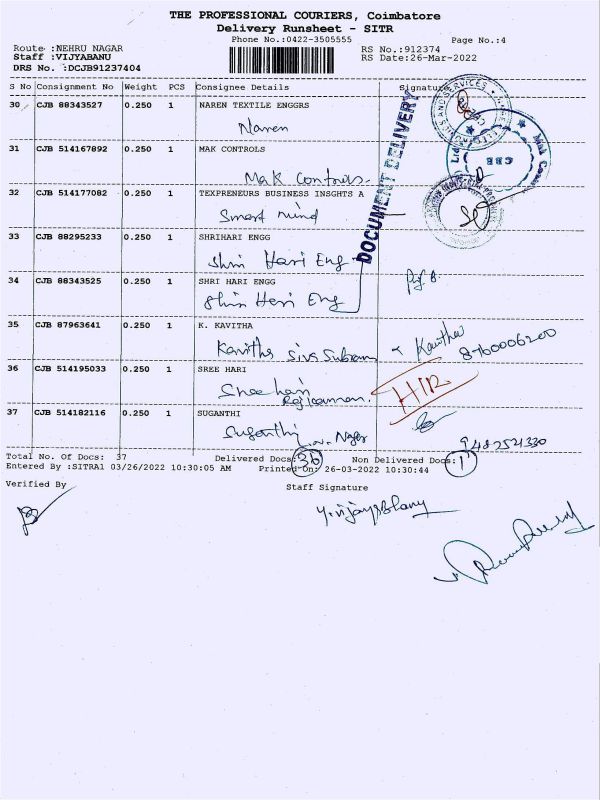 THE PROFESSIONAL COURIERS, Coimbatore
Delivery Runsheet - SITR
Phone No.:0422-3505555
Page No.:4
Route :NEHRU NAGAR
RS No.:912374
Staff :VIJYABANU
RS Date:26-Mar-2022
DRS No. :DCJB91237404
S No Consignment No Weight PCS Consignee Details Signature
30 CJB 88343527 0.250 1 NAREN TEXTILE ENGGRS
Naren
31 CJB 514167892 0.250 1 MAK CONTROLS
Mak Controls.
32 CJB 514177082 0.250 1 TEXPRENEURS BUSINESS INSGHTS A
Smart mind
DOCUMENT DELIVERY
33 CJB 88295233 0.250 1 SHRIHARI ENGG
Shri Hari Eng
34 CJB 88343525 0.250 1 SHRI HARI ENGG
Shri Hari Eng
35 CJB 87963641 0.250 1 K. KAVITHA
Kavitha Siva Subram
Kavitha
8760006200
36 CJB 514195033 0.250 1 SREE HARI
Sree hari
37 CJB 514182116 0.250 1 SUGANTHI
Suganthi
Total No. Of Docs: 37 Delivered Docs: 36 Non Delivered Docs: 1
Entered By :SITRA1 03/26/2022 10:30:05 AM Printed On: 26-03-2022 10:30:44
Verified By Staff Signature